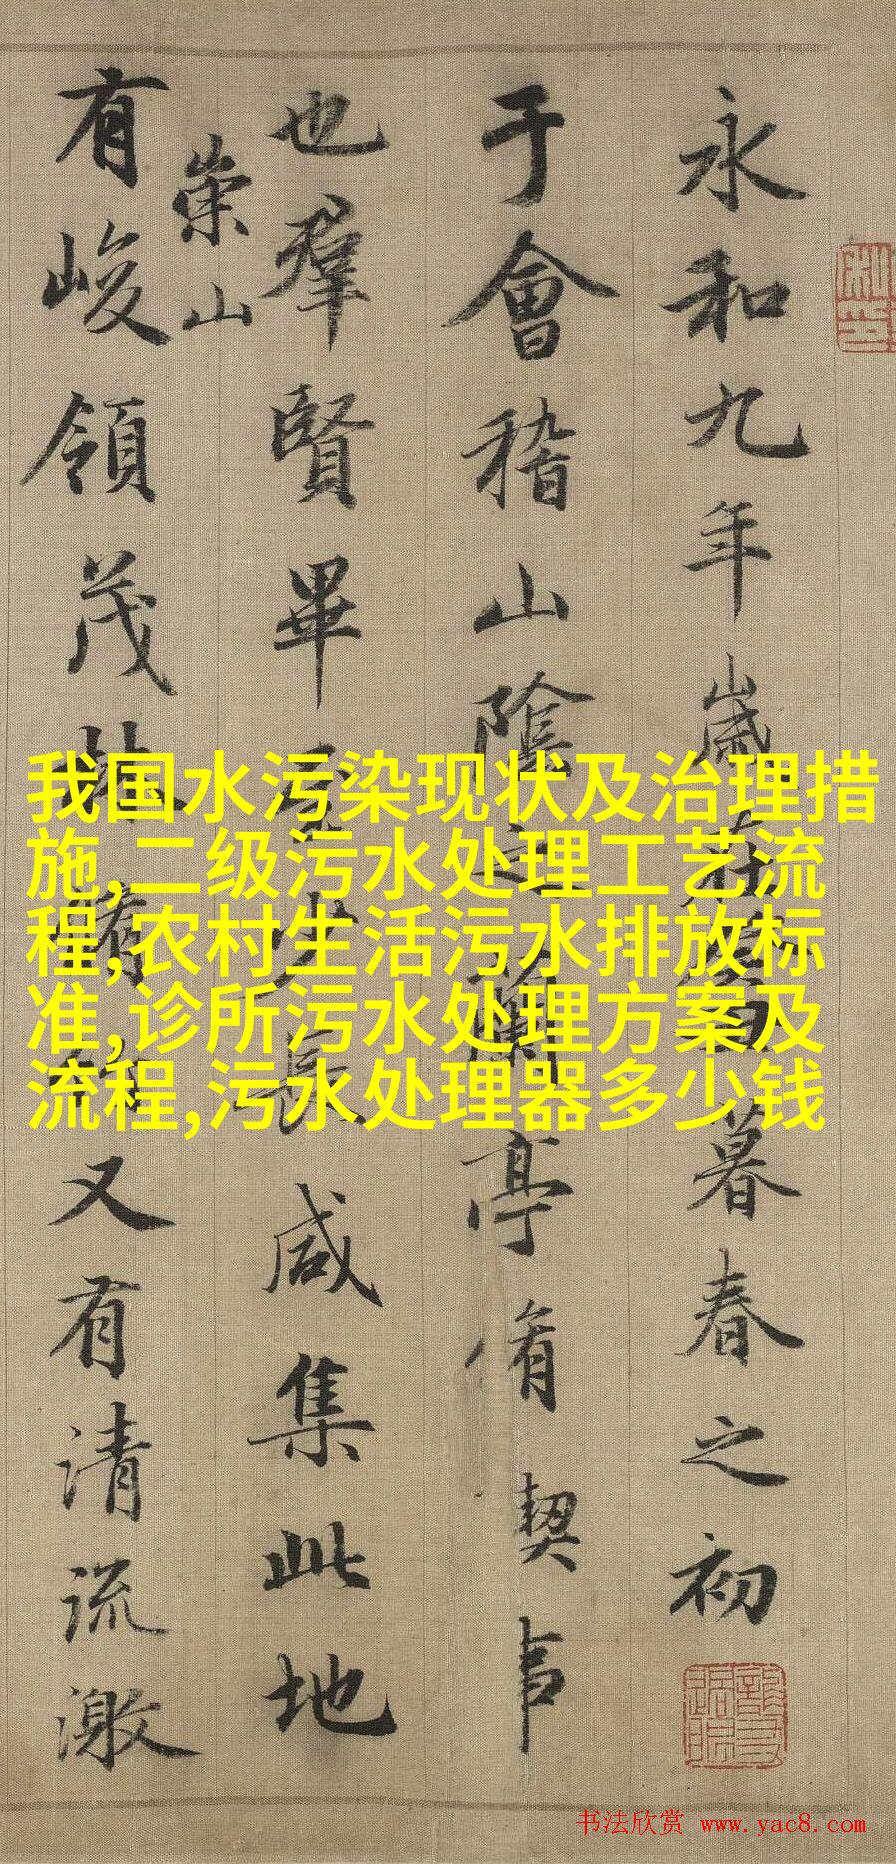 永和九年歲在癸丑暮春之初
于會稽山陰之蘭亭脩禊事
也羣賢畢至少長咸集此地
崇山
有峻領茂林脩竹又有清流激
我国水污染现状及治理措
施,二级污水处理工艺流
程,农村生活污水排放标
准,诊所污水处理方案及
流程,污水处理器多少钱
书法欣赏 www.yac8.com